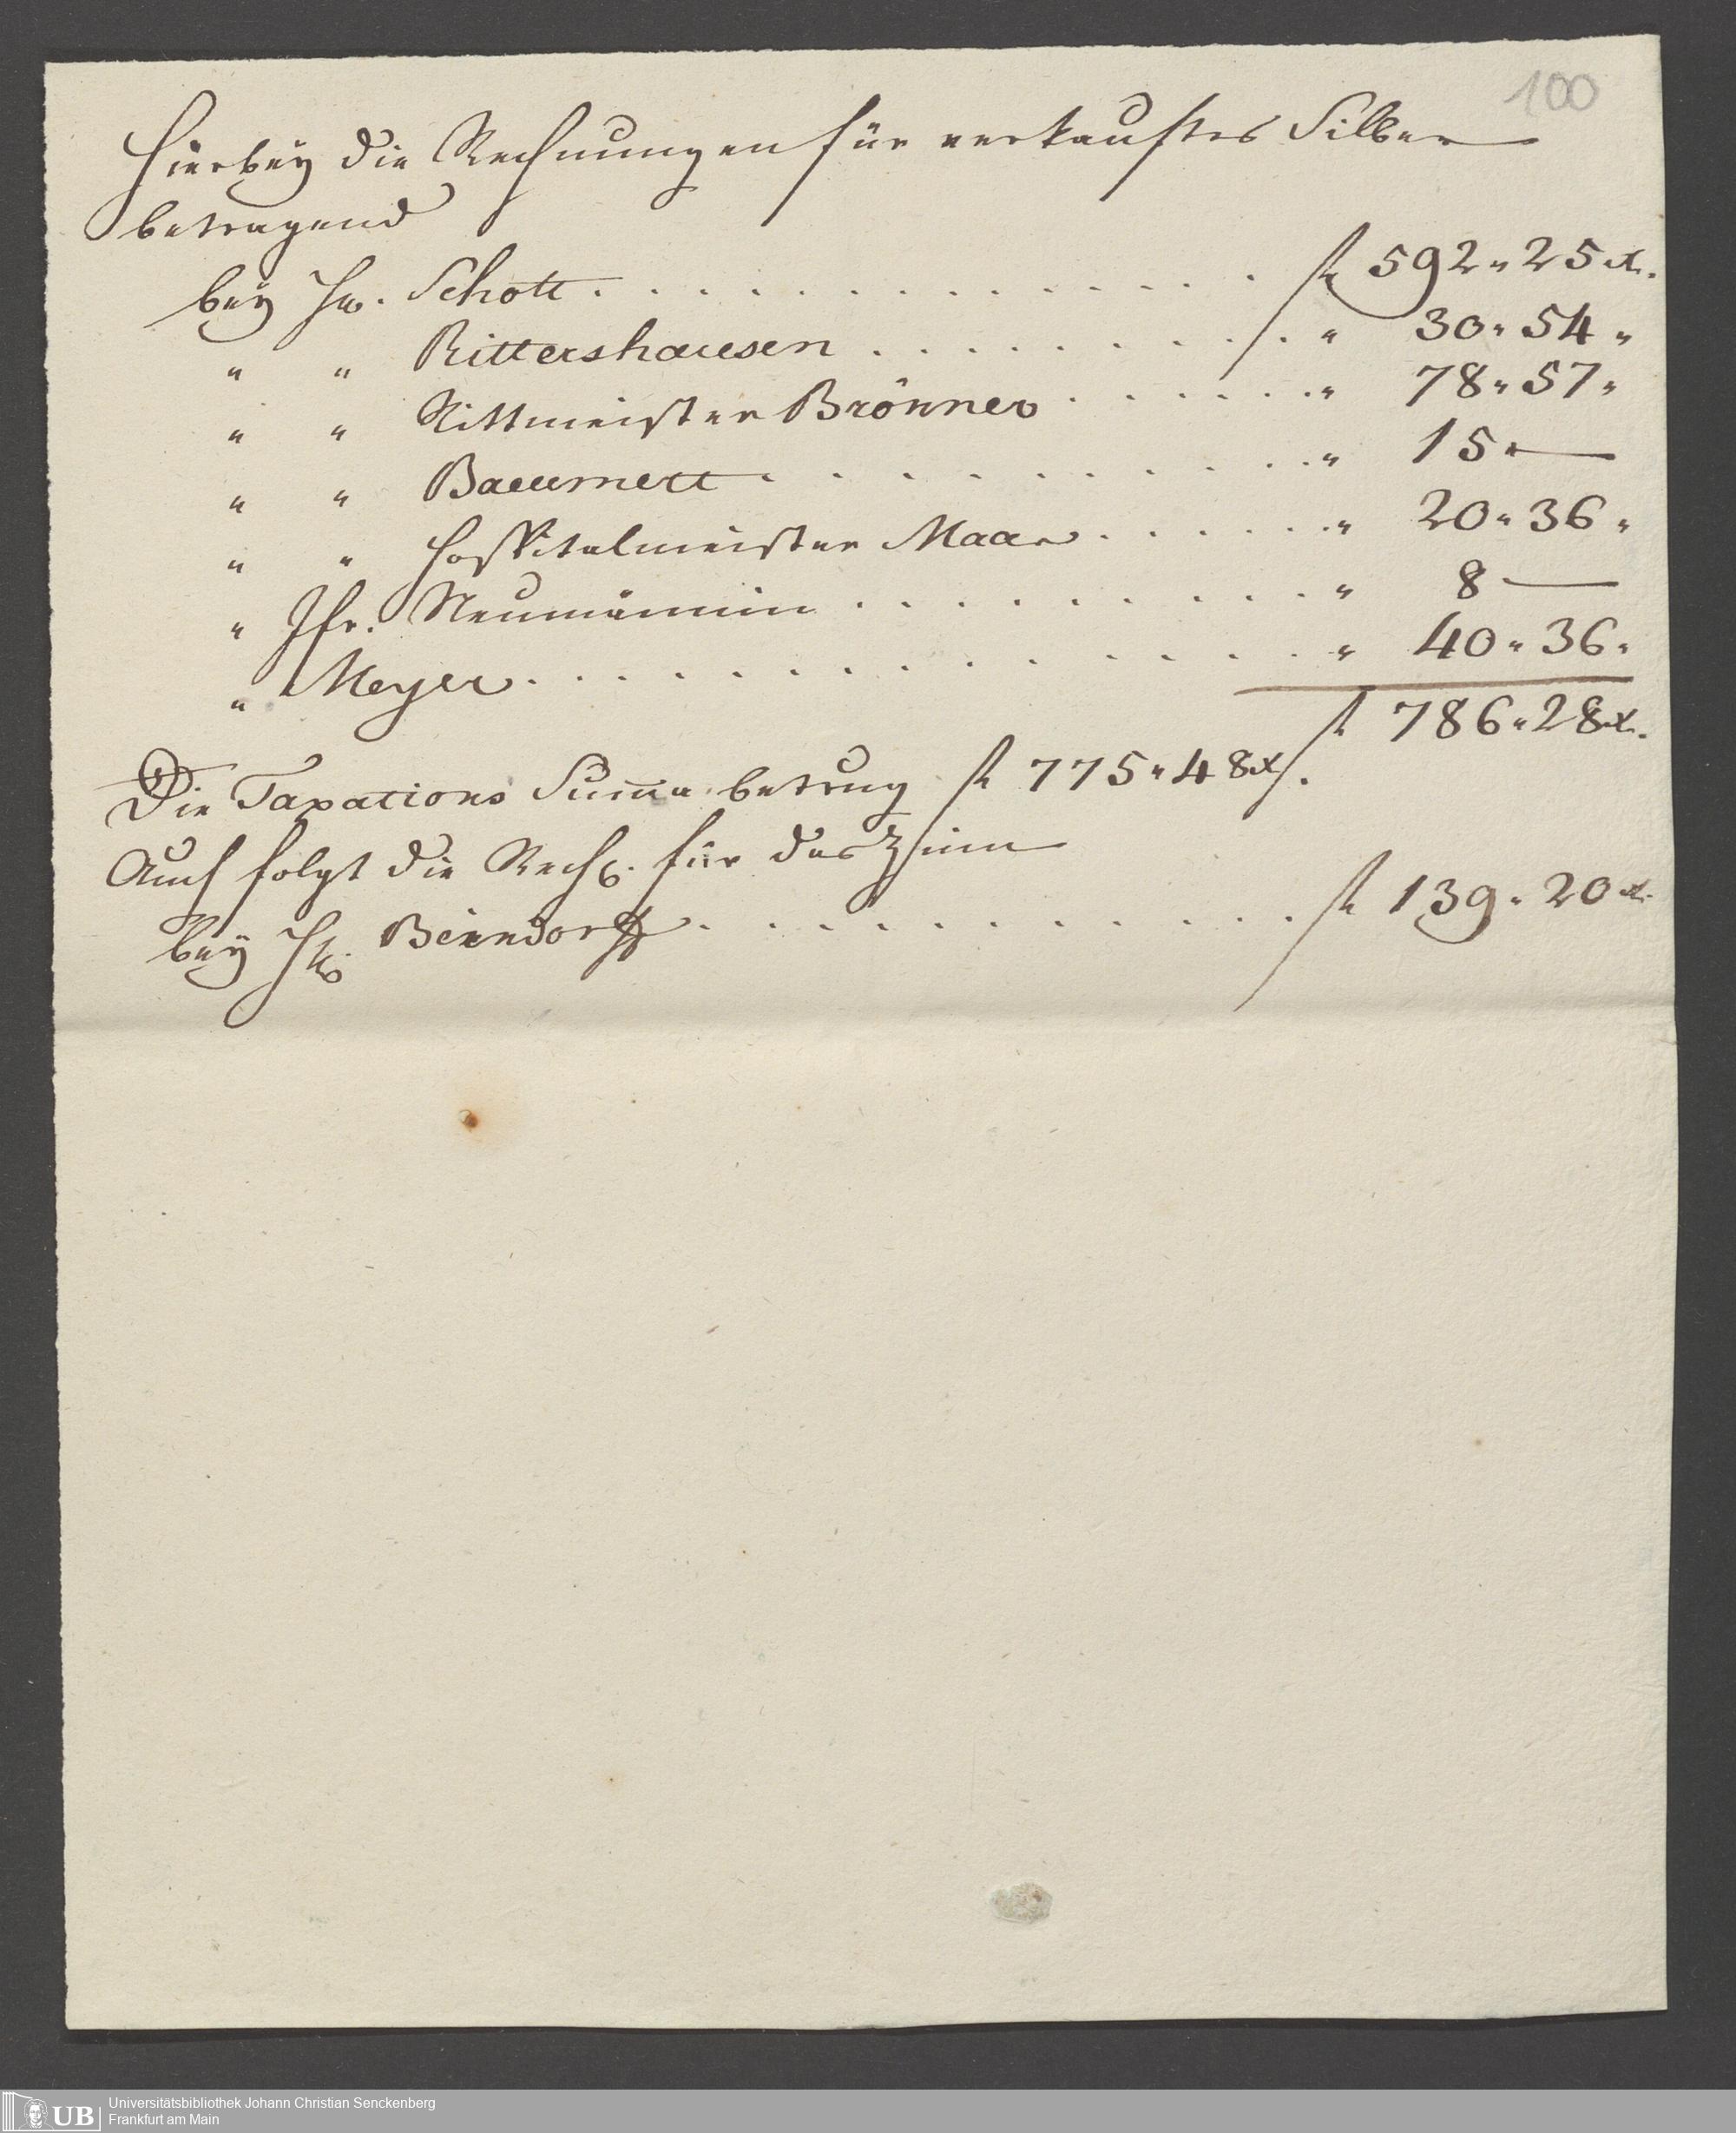 100
Hierbey die Rechnungen für verkauftes Silber
betragend
bey Hr. Schott . . . . . . . . . . . . . . f 592 " 25 x.
" " Rittershausen . . . . . . . . . " 30 " 54 "
" " Rittmeister Brönner . . . . . . " 78 " 57 "
" " Baeumert . . . . . . . . . . " 15 " —
" " Hospitalmeister Maar . . . . . . " 20 " 36 "
" Jfr. Neumännin . . . . . . . . . " 8 —
" Meyer . . . . . . . . . . . . . " 40 " 36 "
f 786 " 28 x.
Die Taxations Sum̄a betrug f 775 " 48 x.
Auch folgt die Rechg. für das Zinn
bey Hr. Benndorff . . . . . . . . . . . . f 139 " 20 x.
UB
Universitätsbibliothek Johann Christian Senckenberg
Frankfurt am Main